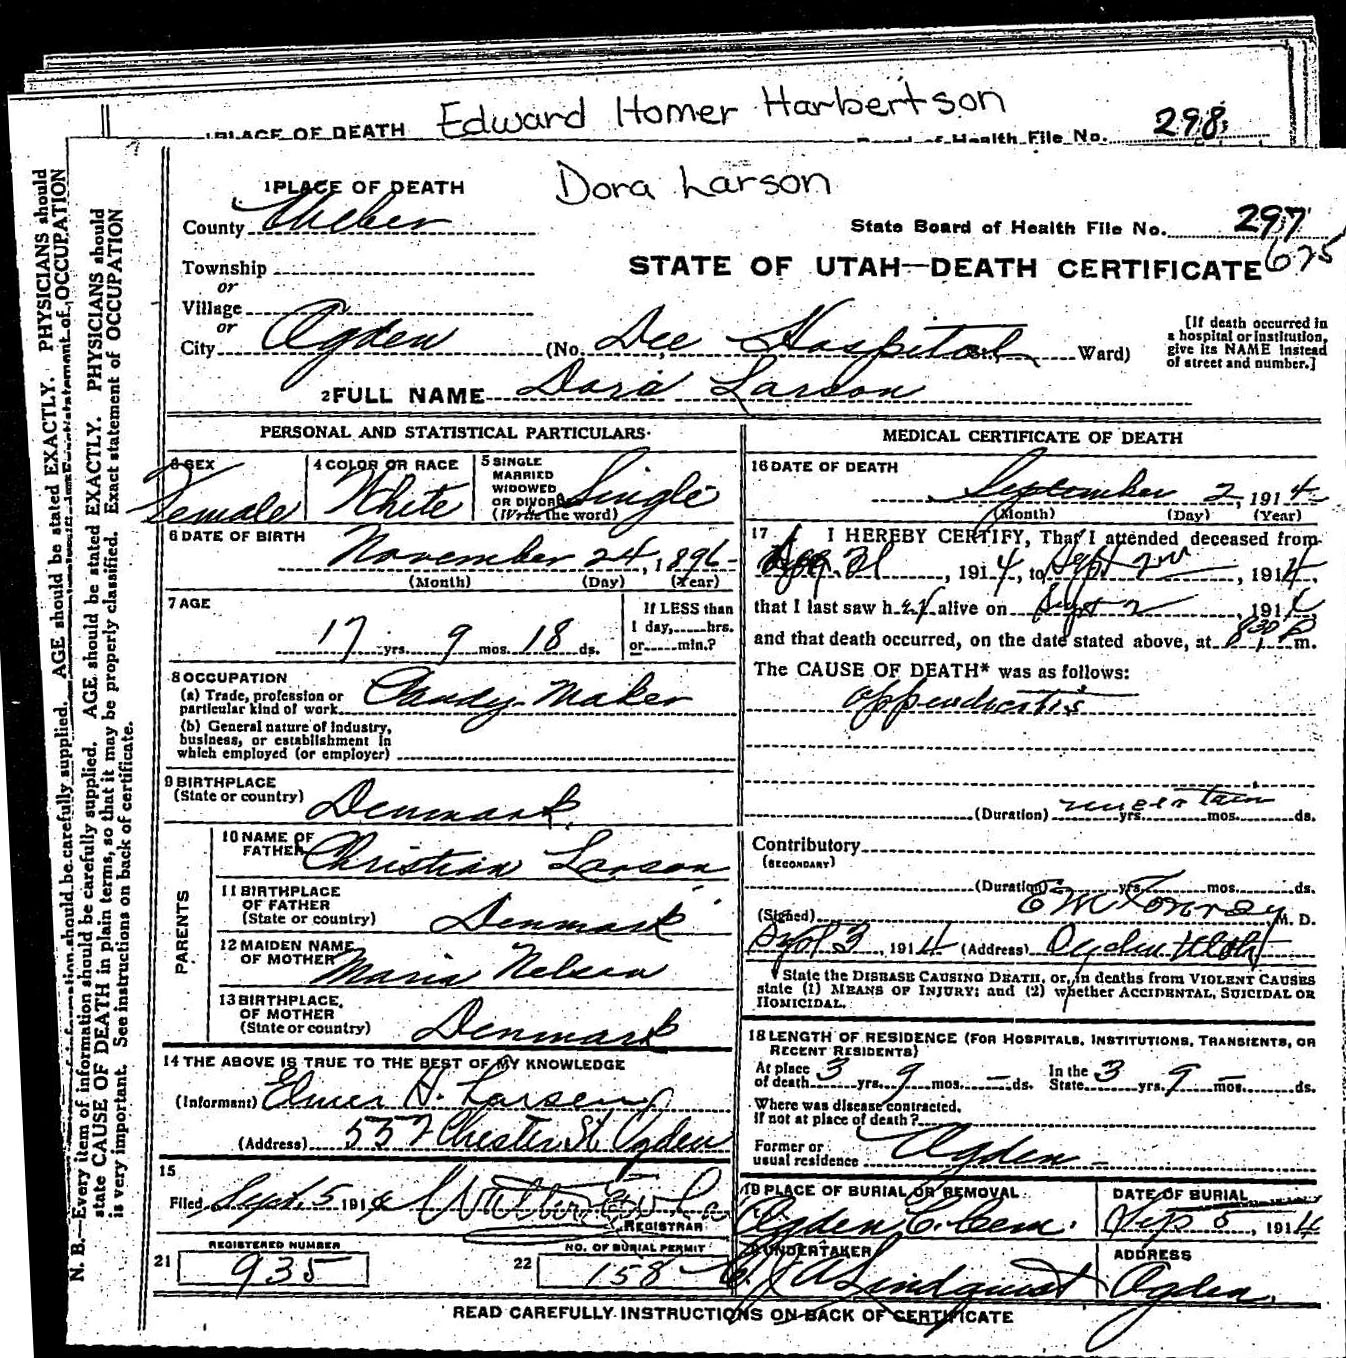 Edward Homer Harbertson
PLACE OF DEATH
Board of Health File No. 298
1 PLACE OF DEATH
Dora Larson
County Weber
State Board of Health File No. 297
625
Township
or
STATE OF UTAH—DEATH CERTIFICATE
Village
or
City Ogden (No. Dee Hospital, Ward)
[If death occurred in a hospital or institution, give its NAME instead of street and number.]
2 FULL NAME Dora Larson
PERSONAL AND STATISTICAL PARTICULARS.
3 SEX Female
4 COLOR OR RACE White
5 SINGLE MARRIED WIDOWED OR DIVORCED (Write the word) Single
6 DATE OF BIRTH November 24, 1896
(Month) (Day) (Year)
7 AGE
17 yrs. 9 mos. 18 ds.
If LESS than 1 day, hrs. or min.?
8 OCCUPATION
(a) Trade, profession or particular kind of work Candy Maker
(b) General nature of industry, business, or establishment in which employed (or employer)
9 BIRTHPLACE
(State or country) Denmark
PARENTS
10 NAME OF FATHER Christian Larson
11 BIRTHPLACE OF FATHER (State or country) Denmark
12 MAIDEN NAME OF MOTHER Maria Nelson
13 BIRTHPLACE OF MOTHER (State or country) Denmark
14 THE ABOVE IS TRUE TO THE BEST OF MY KNOWLEDGE
(Informant) Elmer H. Larsen
(Address) 552 Chester St. Ogden
15
Filed Sept. 5 1914
REGISTRAR
21 REGISTERED NUMBER 935
22 NO. OF BURIAL PERMIT 158
MEDICAL CERTIFICATE OF DEATH
16 DATE OF DEATH
September 2, 1914
(Month) (Day) (Year)
17 I HEREBY CERTIFY, That I attended deceased from
31, 1914, to Sept 2nd, 1914,
that I last saw her alive on Sept 2, 1914
and that death occurred, on the date stated above, at 8 30 P m.
The CAUSE OF DEATH* was as follows:
appendicitis
(Duration) uncertain yrs. mos. ds.
Contributory
(SECONDARY)
(Duration) yrs. mos. ds.
(Signed) E M Conroy M. D.
Sept 3, 1914 (Address) Ogden Utah
* State the DISEASE CAUSING DEATH, or, in deaths from VIOLENT CAUSES state (1) MEANS OF INJURY; and (2) whether ACCIDENTAL, SUICIDAL OR HOMICIDAL.
18 LENGTH OF RESIDENCE (FOR HOSPITALS, INSTITUTIONS, TRANSIENTS, OR RECENT RESIDENTS)
At place of death 3 yrs. 9 mos. – ds. In the State 3 yrs. 9 mos. – ds.
Where was disease contracted, if not at place of death?
Former or usual residence Ogden –
19 PLACE OF BURIAL OR REMOVAL
Ogden C. Cem.
DATE OF BURIAL
Sep 5, 1914
20 UNDERTAKER
Lindquist
ADDRESS
Ogden
READ CAREFULLY INSTRUCTIONS ON BACK OF CERTIFICATE
N. B.—Every item of information should be carefully supplied. AGE should be stated EXACTLY. PHYSICIANS should
state CAUSE OF DEATH in plain terms, so that it may be properly classified. Exact statement of OCCUPATION
is very important. See instructions on back of certificate.